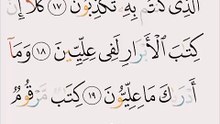 ٱلَّذِى كُنتُم بِهِۦ تُكَذِّبُونَ ١٧ كَلَّآ إِنَّ
كِتَٰبَ ٱلْأَبْرَارِ لَفِى عِلِّيِّينَ ١٨ وَمَآ
أَدْرَىٰكَ مَا عِلِّيُّونَ ١٩ كِتَٰبٌ مَّرْقُومٌ